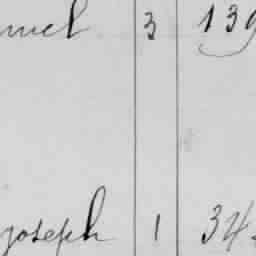 muel 3 139
joseph 1 34